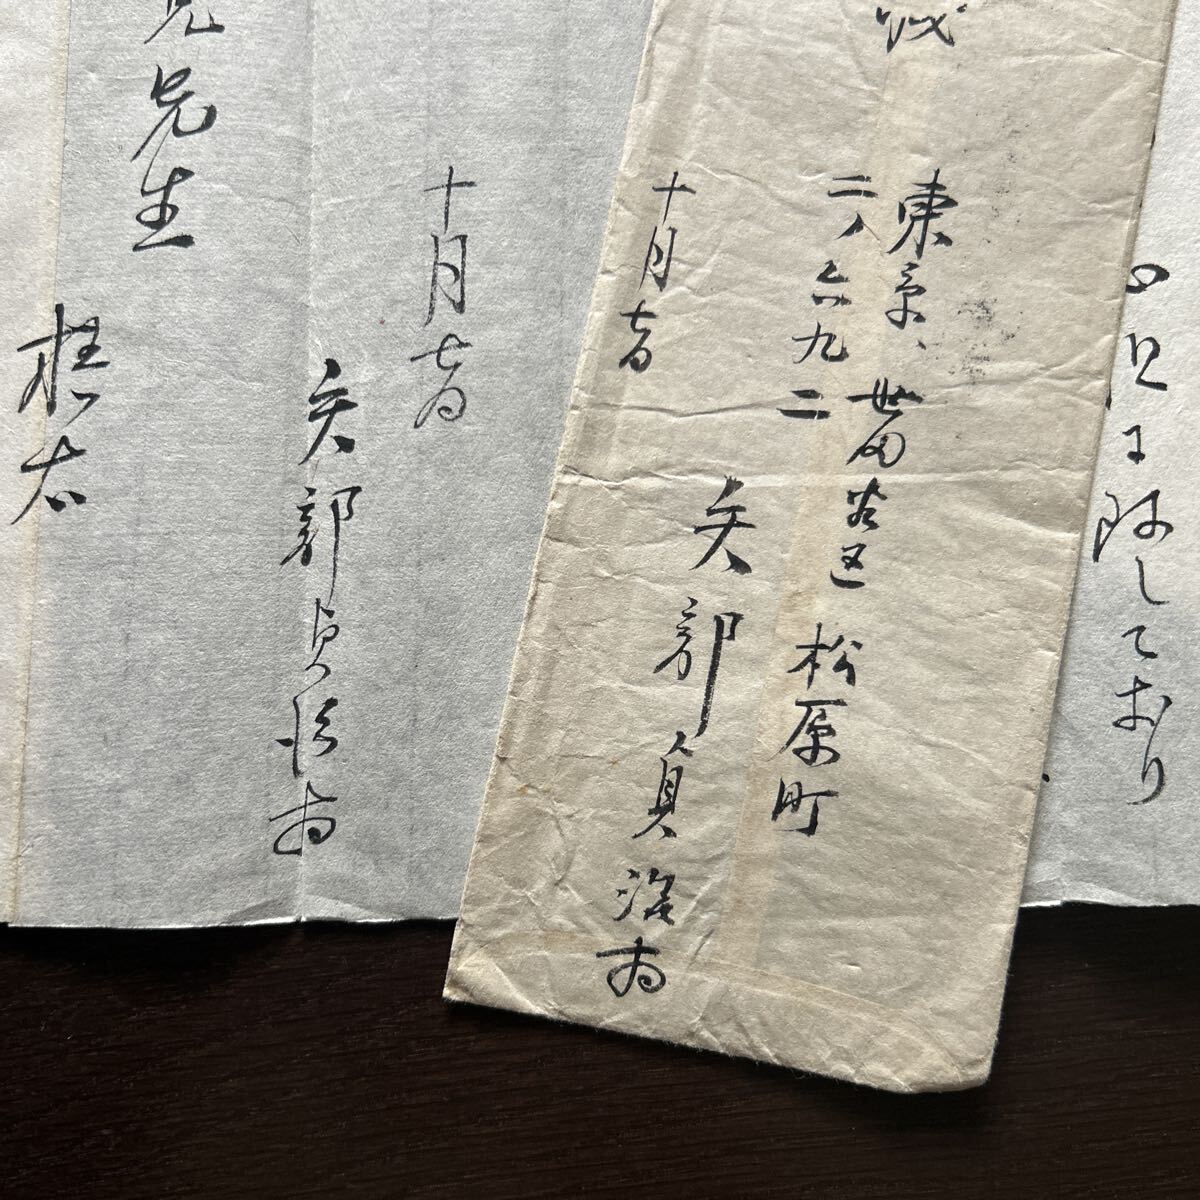 しており
東京、世田谷区 松原町
二ノ六九二
矢部貞治
十月七日
十月七日
矢部貞治
先生
梧右